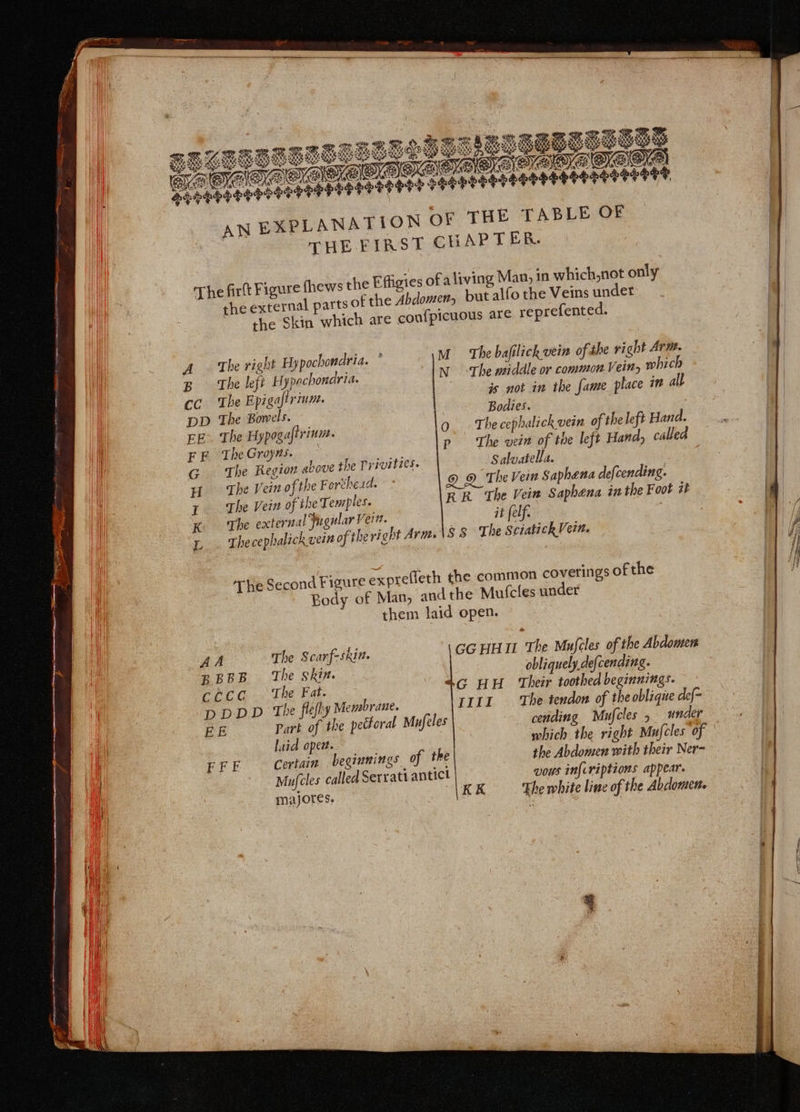 AN EXPLANATION OF THE TABLE OF
THE FIRST CHAPTER.
The firſt Figure ſhews the Effigies of a living Man, in which, not only
the external parts of the Abdomen, but alſo the Veins under
the Skin which are conſpicuous are repreſented.
A The right Hypochondria.
B The left Hypochondria.
CC The Epigaſtrium.
DD The Bowels.
EE The Hypogaſtrium.
FF The Groyns.
G The Region above the Privities.
H The Vein of the Forehead.
I The Vein of the Temples.
K The external Jugular Vein.
L The cephalick vein of the right Arm.
M The baſilick vein of the right Arm.
N The middle or common Vein, which
is not in the ſame place in all
Bodies.
O The cephalick vein of the left Hand.
P The vein of the left Hand, called
Salvatella.
Q Q The Vein Saphæna deſcending.
R R The Vein Saphæna in the Foot it
it ſelf.
S S The Sciatick Vein.
The Second Figure expreſſeth the common coverings of the
Body of Man, and the Muſcles under
them laid open.
A A The Scarf-skin.
B B B B The Skin.
C C C C The Fat.
D D D D The fleſhy Membrane.
E E Part of the pectoral Muſcles
laid open.
F F F Certain beginnings of the
Muſcles called Serrati antici
majores.
GG HH II The Muſcles of the Abdomen
obliquely deſcending.
G HH Their toothed beginnings.
IIII The tendon of the oblique deſ-
cending Muſcles, under
which the right Muſcles of
the Abdomen with their Ner-
vous inſcriptions appear.
K K The white line of the Abdomen.